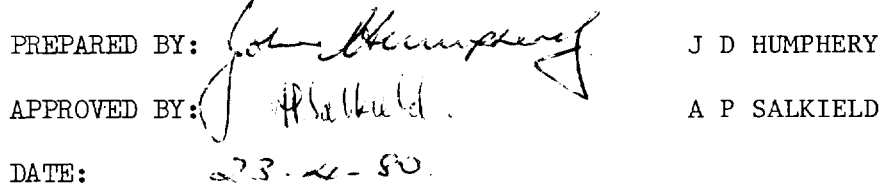 PREPARED BY: John Humphery J D HUMPHERY
APPROVED BY: APSalkield. A P SALKIELD
DATE: 23-4-80.